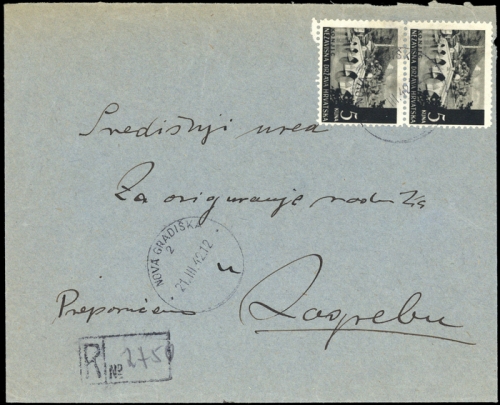 NEZAVISNA DRŽAVA HRVATSKA
5
KUNA
NEZAVISNA DRŽAVA HRVATSKA
5
KUNA
Središnji ured
Za osiguranje radnika
NOVA GRADIŠKA
2
21.III.42.12
u
Preporučeno Zagrebu
R № 275